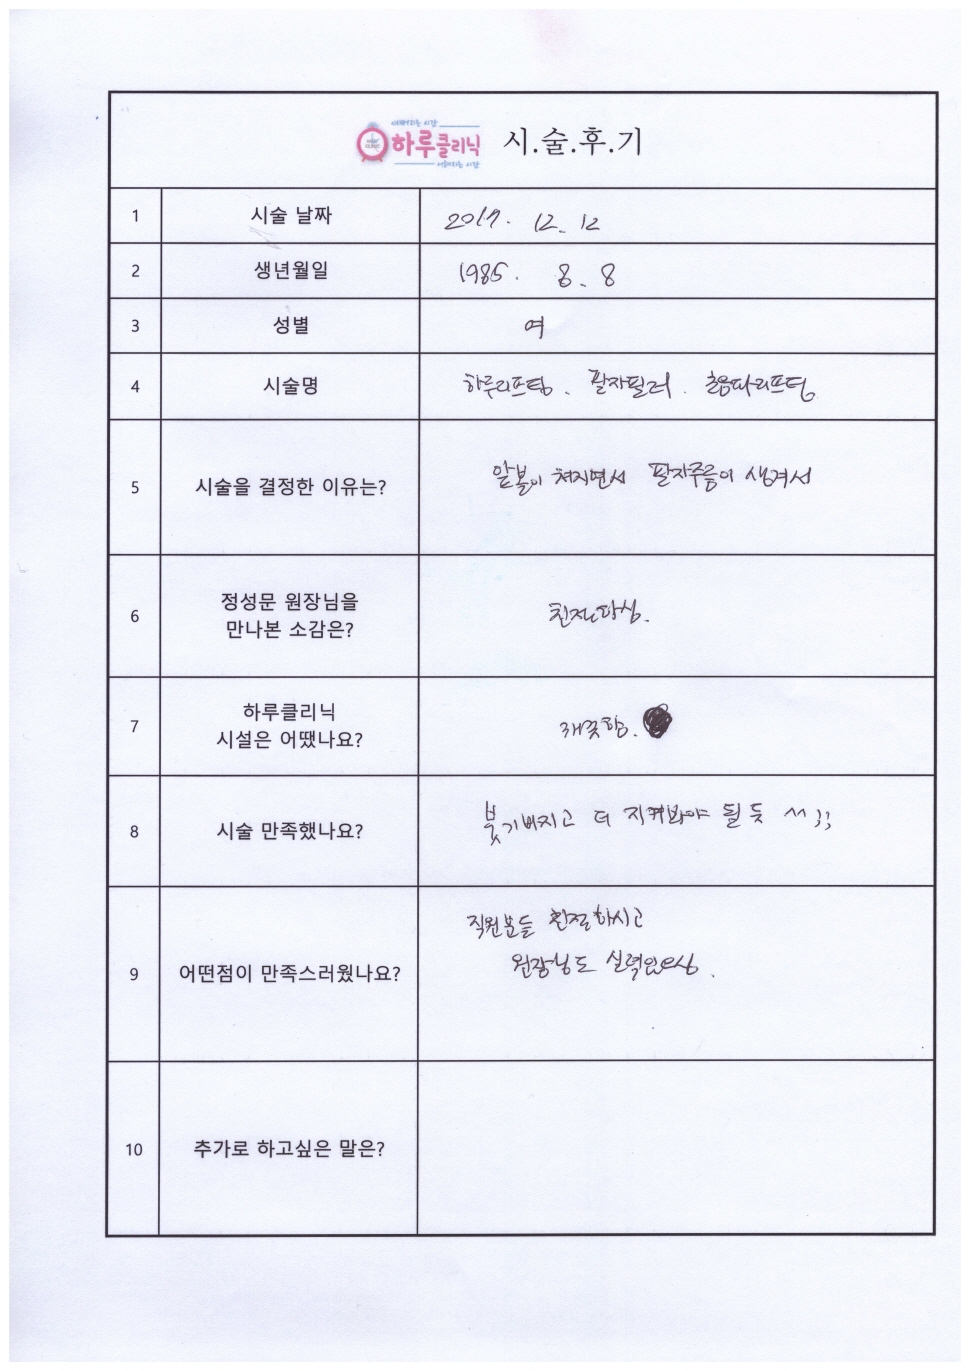 하루클리닉 시.술.후.기
1 시술 날짜 2017. 12. 12
2 생년월일 1985. 8. 8
3 성별 여
4 시술명 하루리프팅. 팔자필러. 초음파리프팅
5 시술을 결정한 이유는? 앞볼이 쳐지면서 팔자주름이 생겨서
6 정성문 원장님을
만나본 소감은? 친절하심.
7 하루클리닉
시설은 어땠나요? 깨끗함.
8 시술 만족했나요? 붓기빠지고 더 지켜봐야 될 듯 ^^;;
직원분들 친절하시고
9 어떤점이 만족스러웠나요? 원장님도 실력있으심.
10 추가로 하고싶은 말은?